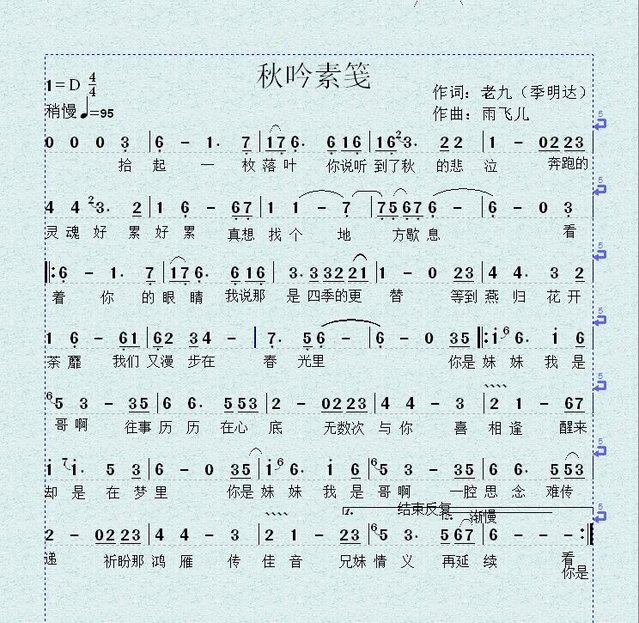 秋吟素笺
1=D 4/4
作词：老九（季明达）
稍慢♩=95
作曲：雨飞儿
0 0 0 3 | 6 - 1. 7 | 176. 616 | 163. 22 | 1 - 0223
拾 起 一 枚 落 叶 你说听 到了秋 的悲 泣 奔跑的
4 4 3. 2 | 1 6 - 67 | 1 1 - 7 | 75676 - | 6 - 0 3
灵 魂 好 累 好 累 真想 找 个 地 方歇 息 看
6 - 1. 7 | 176. 616 | 3. 33221 | 1 - 0 23 | 4 4. 3 2
着 你 的 眼 睛 我说那 是 四季的更 替 等到 燕 归 花 开
1 6 - 61 | 62 34 - | 7. 56 - | 6 - 0 35 | i 6. i 6
荼 靡 我们 又漫 步在 春 光里 你是 妹 妹 我 是
5 3 - 35 | 6 6. 553 | 2 - 0223 | 4 4 - 3 | 2 1 - 67
哥 啊 往事 历 历 在心 底 无数次 与 你 喜 相 逢 醒来
i i. 5 3 | 6 - 0 35 | i 6. i 6 | 5 3 - 35 | 6 6. 553
却 是 在 梦 里 你是 妹 妹 我 是 哥 啊 一腔 思 念 难传
结束反复
渐慢
2 - 0223 | 4 4 - 3 | 2 1 - 23 | 5 3. 567 | 6 - - -
递 祈盼那 鸿 雁 传 佳 音 兄妹 情 义 再延 续 看
你是